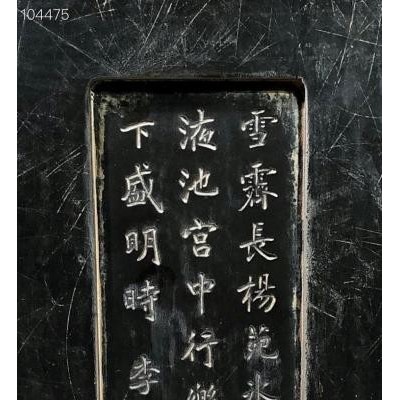 104475
雪霽長楊苑氷
液池宮中行樂
下盛明時 李